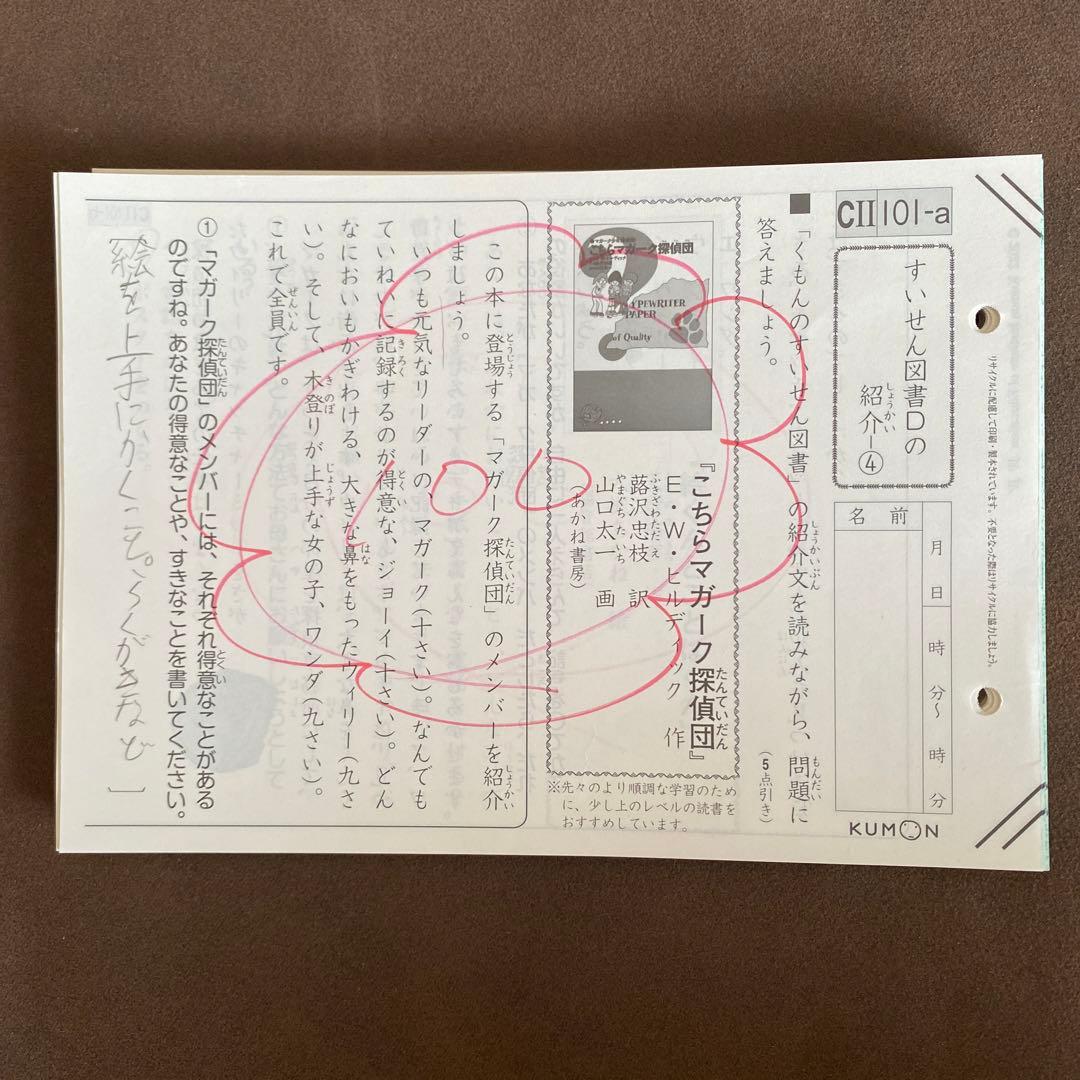 CII 101-a
すいせん図書Dの
紹介-④
名前
月 日
時 分〜 時 分
KUMON
リサイクルに配慮して印刷・製本されています。不要となった際はリサイクルに協力しましょう。
■ 「くもんのすいせん図書」の紹介文を読みながら、問題に
答えましょう。
(5点引き)
こちらマガーク探偵団
TYPEWRITER
PAPER
of Quality
『こちらマガーク探偵団』
E・W・ヒルディック 作
蕗沢忠枝 訳
山口太一 画
(あかね書房)
※先々のより順調な学習のため
に、少し上のレベルの読書を
おすすめしています。
この本に登場する「マガーク探偵団」のメンバーを紹介
しましょう。
いつも元気なリーダーの、マガーク(十さい)。なんでも
ていねいに記録するのが得意な、ジョーイ(十さい)。どん
なにおいもかぎわける、大きな鼻をもったウィリー(九さ
い)。そして、木登りが上手な女の子、ワンダ(九さい)。
これで全員です。
①「マガーク探偵団」のメンバーには、それぞれ得意なことがある
のですね。あなたの得意なことや、すきなことを書いてください。
[絵を上手にかくこと。らくがきなど]
100